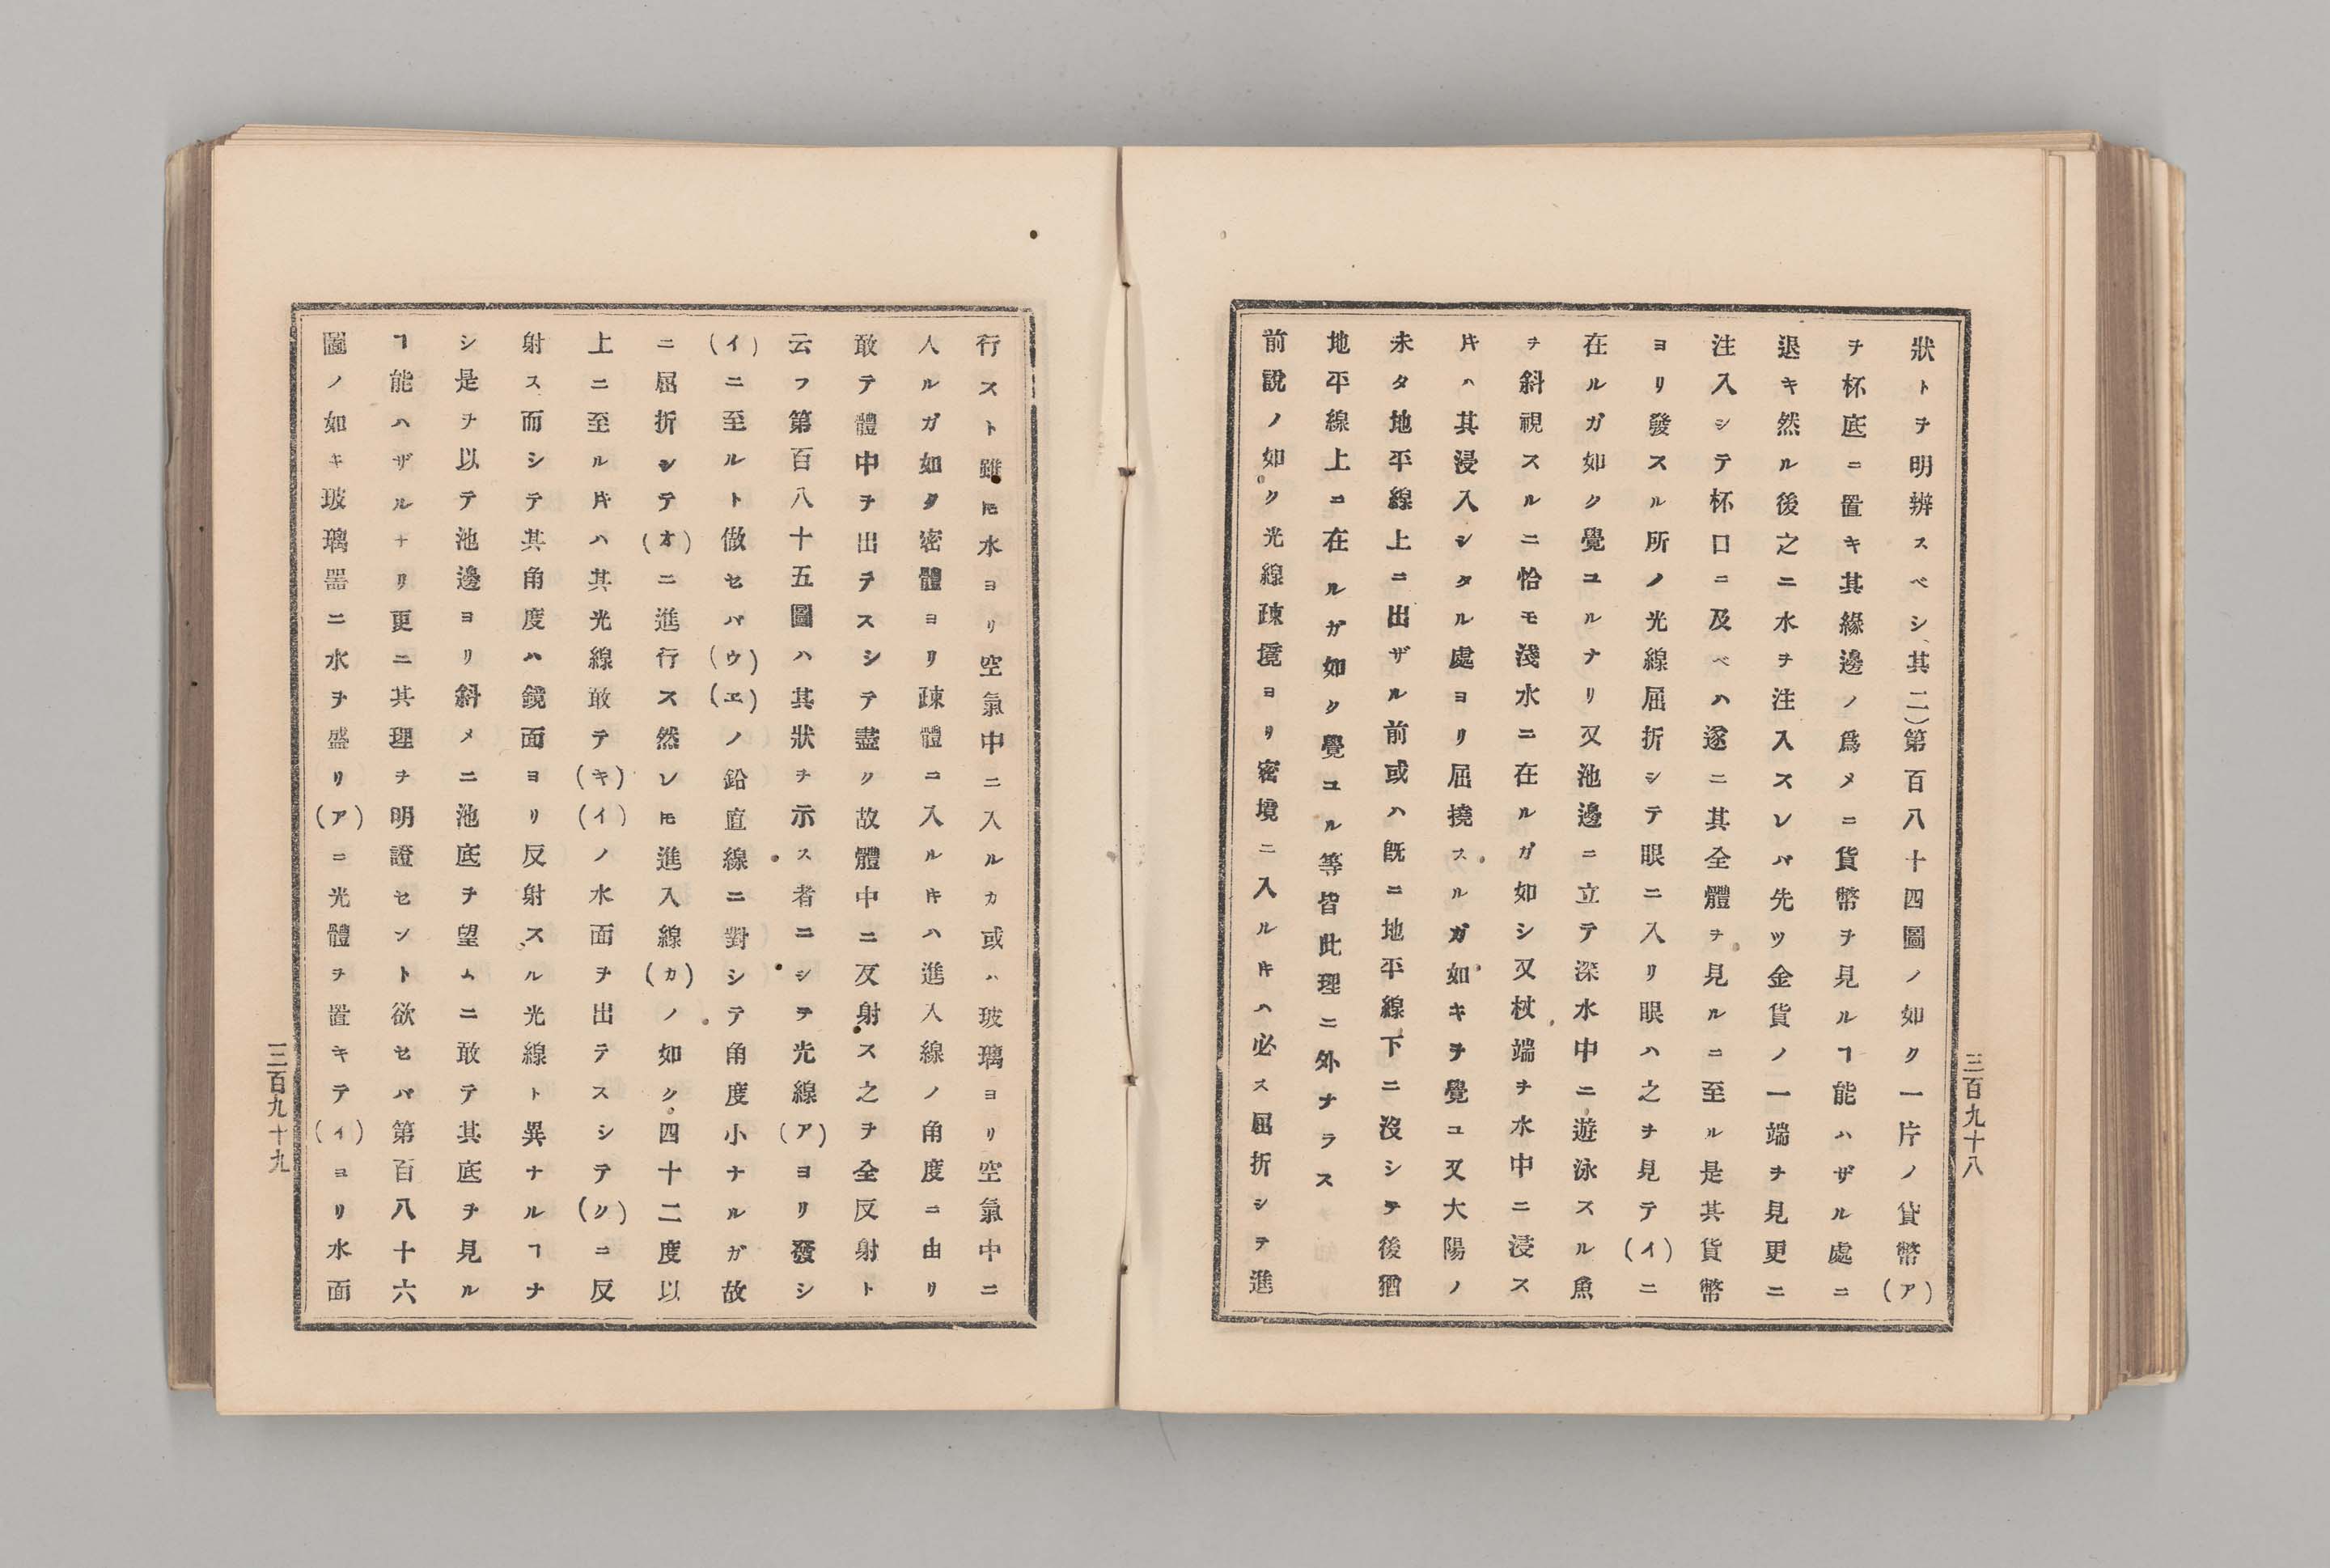 狀トヲ明辨スベシ(其二)第百八十四圖ノ如ク一片ノ貨幣(ア)
ヲ杯底ニ置キ其緣邊ノ爲メニ貨幣ヲ見ルヿ能ハザル處ニ
退キ然ル後之ニ水ヲ注入スレバ先ツ金貨ノ一端ヲ見更ニ
注入シテ杯口ニ及ベハ遂ニ其全體ヲ見ルニ至ル是其貨幣
ヨリ發スル所ノ光線屈折シテ眼ニ入リ眼ハ之ヲ見テ(イ)ニ
在ルガ如ク覺ユルナリ又池邊ニ立テ深水中ニ遊泳スル魚
ヲ斜視スルニ恰モ淺水ニ在ルガ如シ又杖端ヲ水中ニ浸ス
𪜈ハ其浸入シタル處ヨリ屈撓スルガ如キヲ覺ユ又大陽ノ
未タ地平線上ニ出ザル前或ハ旣ニ地平線下ニ沒シテ後猶
地平線上ニ在ルガ如ク覺ユル等皆此理ニ外ナラス
前說ノ如ク光線疎境ヨリ密境ニ入ルキハ必ス屈折シテ進
三百九十八
行スト雖𪜈水ヨリ空氣中ニ入ルカ或ハ玻璃ヨリ空氣中ニ
入ルガ如タ密體ヨリ疎體ニ入ルキハ進入線ノ角度ニ由リ
敢テ體中ヲ出テスシテ盡ク故體中ニ反射ス之ヲ全反射ト
云フ第百八十五圖ハ其狀ヲ示ス者ニシテ光線(ア)ヨリ發シ
(イ)ニ至ルト倣セバ(ウ)(ヱ)ノ鉛直線ニ對シテ角度小ナルガ故
ニ屈折シテ(オ)ニ進行ス然レ𪜈進入線(カ)ノ如ク四十二度以
上ニ至ルキハ其光線敢テ(キ)(イ)ノ水面ヲ出テスシテ(ク)ニ反
射ス而シテ其角度ハ鏡面ヨリ反射スル光線ト異ナルヿナ
シ是ヲ以テ池邊ヨリ斜メニ池底ヲ望ムニ敢テ其底ヲ見ル
ヿ能ハザルナリ更ニ其理ヲ明證セント欲セバ第百八十六
圖ノ如キ玻璃器ニ水ヲ盛リ(ア)ニ光體ヲ置キテ(イ)ヨリ水面
三百九十九